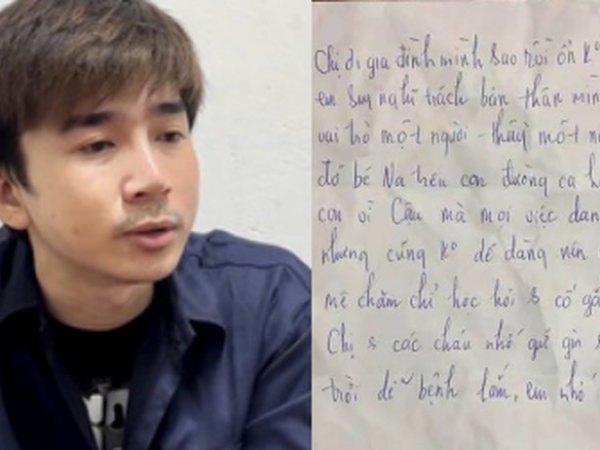 Chị di gia đình mình sao rồi ổn kº
em suy nghĩ trách bản thân mìn
vai trò một người - thầy một
đỡ bé Na trên con đường ca h
con vì Cậu mà mọi việc dan
nhưng cũng kº dể dàng nên
mê chăm chỉ học hỏi & cố gắ
Chị & các cháu nhớ giữ gìn s
trời dể bệnh lắm, em nhớ